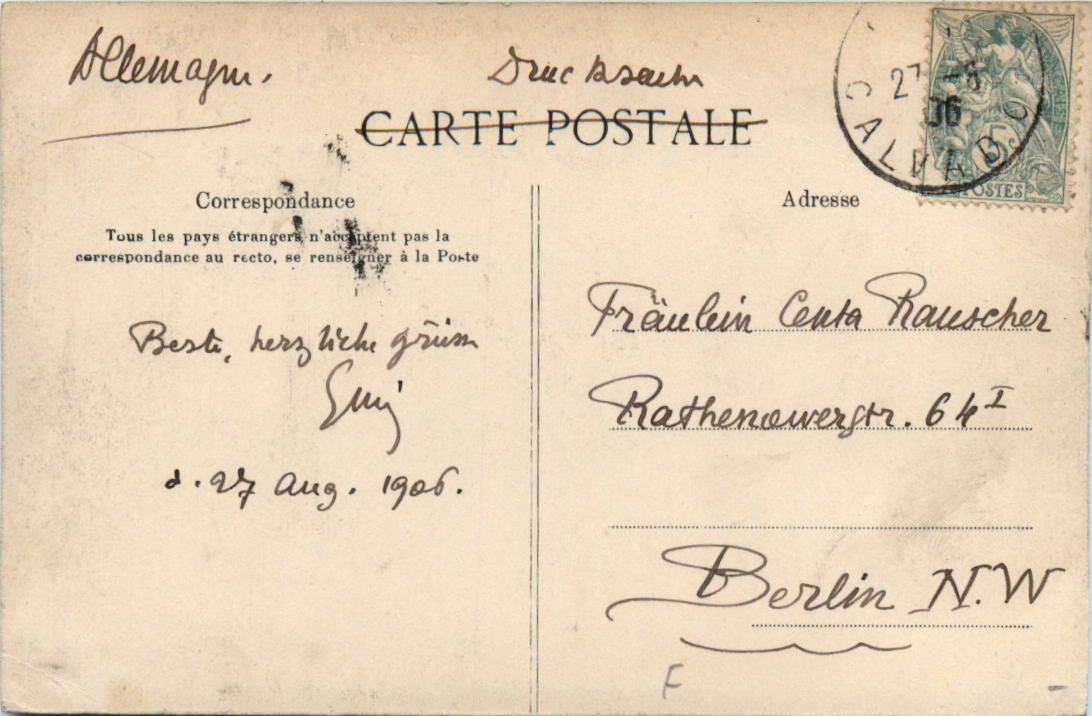 Allemagne.
Drucksache
CARTE POSTALE
27 -8
06
CALVADO
5
POSTES
Correspondance
Adresse
Tous les pays étrangers n'acceptent pas la
correspondance au recto, se renseigner à la Poste
Fräulein Centa Rauscher
Beste, herzliche grüsse
Rathenowerstr. 64 I
d. 27 Aug. 1906.
Berlin N.W
F